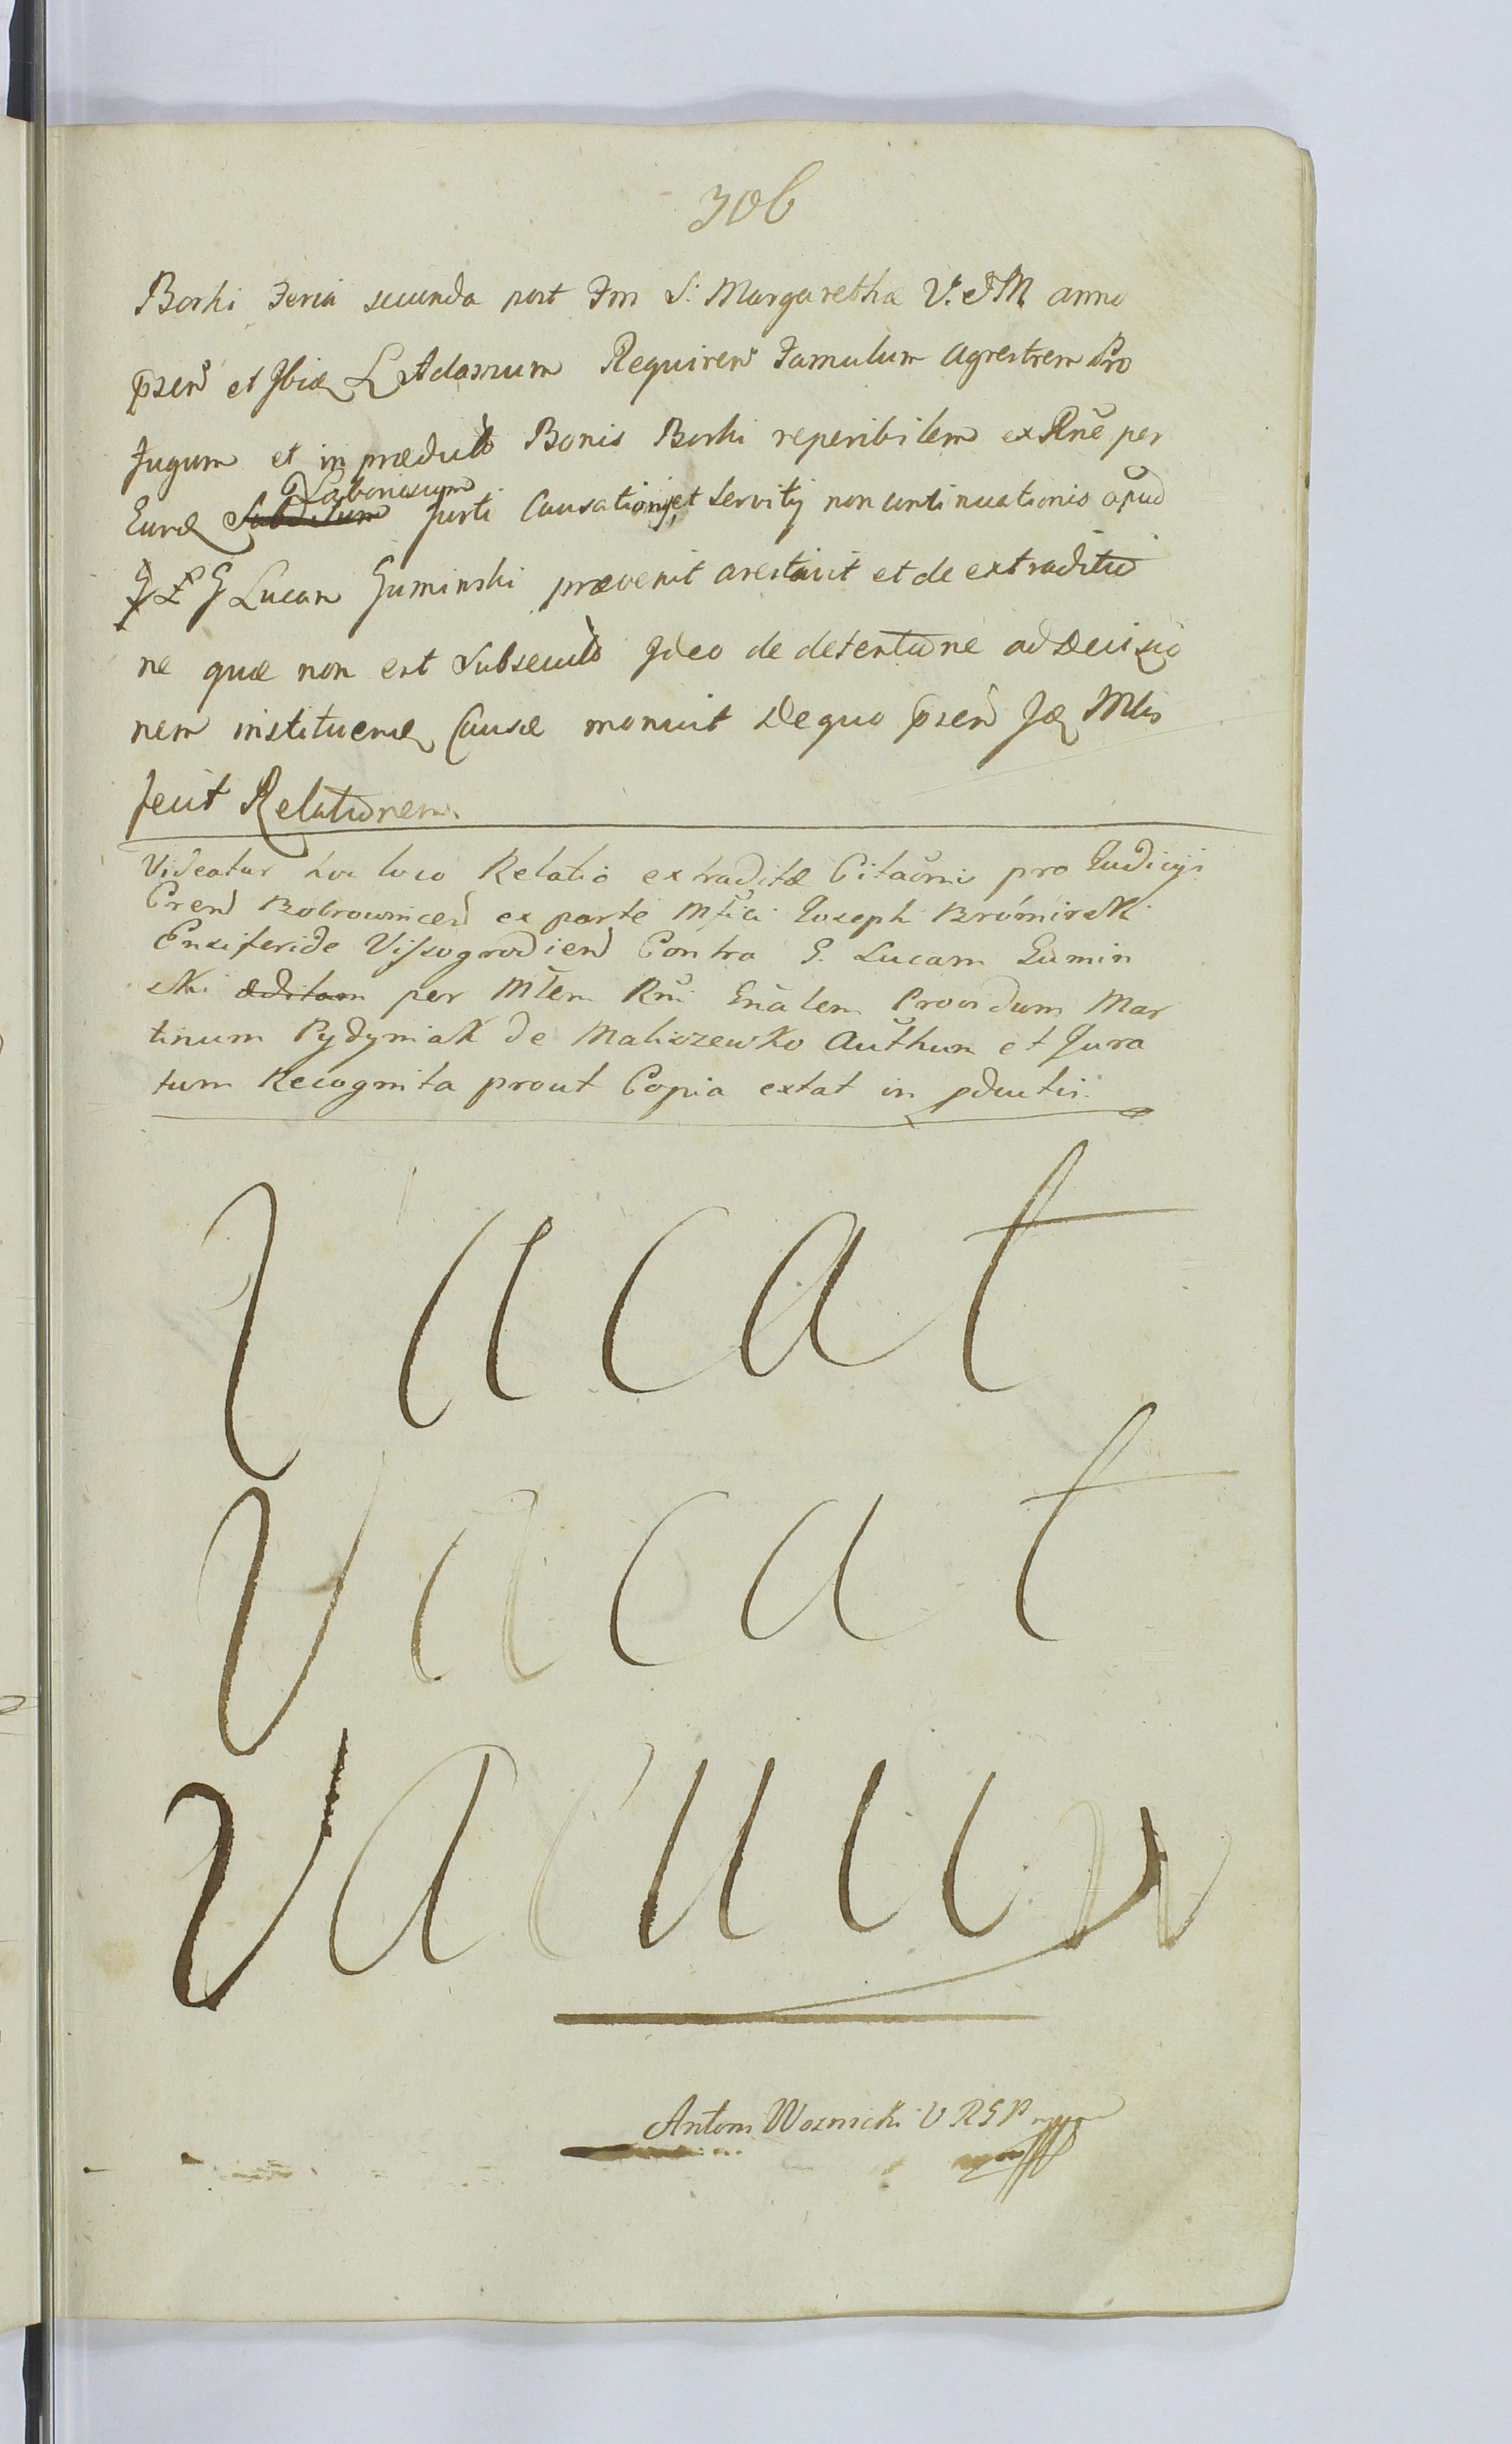 306
Borki Feria secunda post Fm S: Margarethæ V. et M anno
pzen et Ibidẽ L Adamum Requiren Famulum agrestrem Pro
Jugum et in prædictis Bonis Borki reperibilem ex Rne per
Laboriosum
Eund Subditum furti Causationis, et Servitij non continuationis apud
G Lucam Guminski prævenit arestavit et de extraditio
ne quæ non est Subsecuta Ideo de detentione ad Decisio
nem instituendæ Causæ monuit De quo pzen Mtis
fecit Relationem.
Videatur hoc loco Relatio extraditæ Citaõnis pro Judicijs
Cren Bobrownicen ex parte Mfici Joseph Brómirski
Ensiferide Vissogrodien Contra G. Lucam Gumin
ski æditam per Mtem Rni Gnãlem Providum Mar
tinum Pydyniak de Maliszewko Authum et Jura
tum Recognita prout Copia extat in pductis.
Vacat
Vacat
Antoni Woznicki V R G P